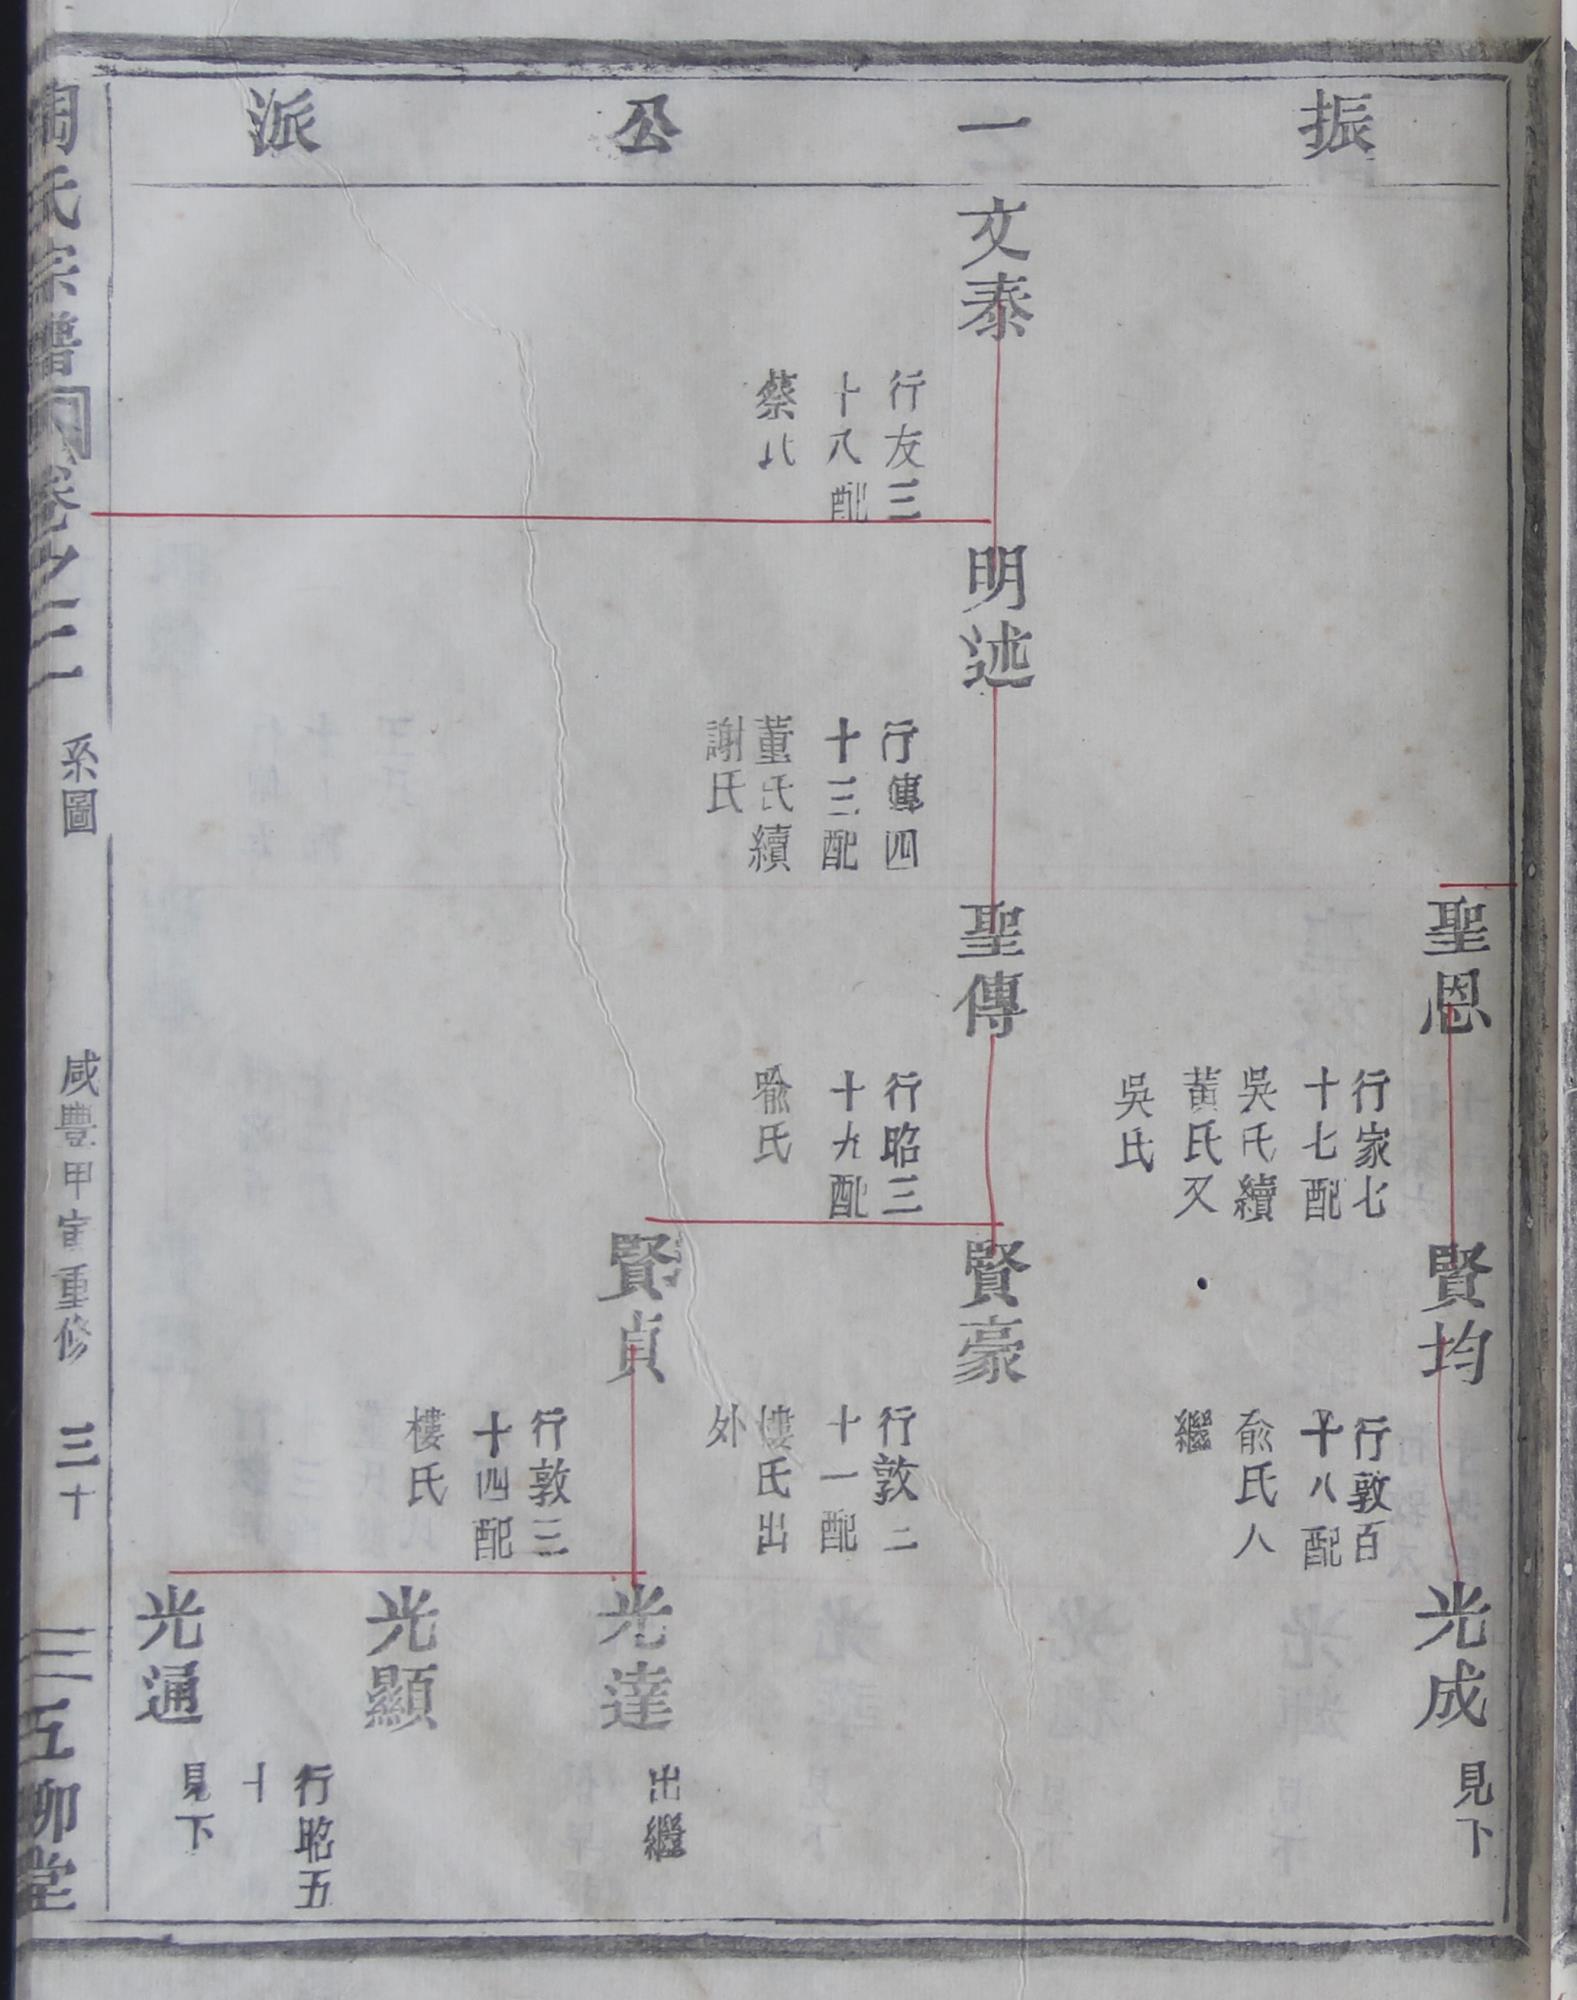 振一公派
文泰
行友三
十八配
蔡氏
明述
行傳四
十三配
董氏續
謝氏
聖恩
行家七
十七配
吳氏續
黃氏又
吳氏
聖傳
行昭三
十九配
喻氏
賢均
行敦百
十八配
俞氏人
繼
賢豪
行敦二
十一配
樓氏出
外
賢貞
行敦三
十四配
樓氏
光成
見下
光達
出繼
光顯
行昭五
十
光通
見下
氏宗譜
卷之
系圖
咸豐甲寅重修
三十
五柳堂